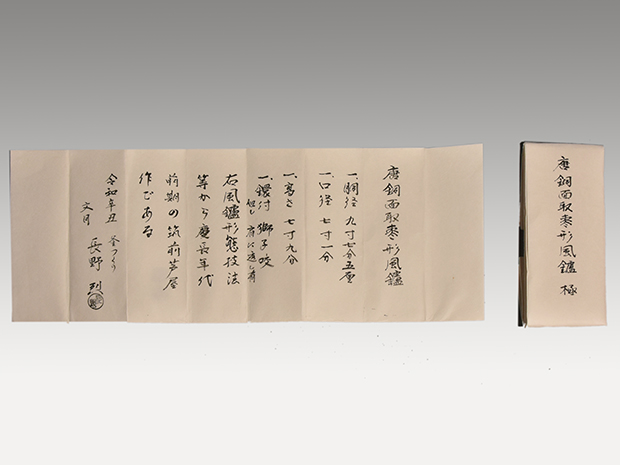 唐銅面取棗形風鑪
一、胴径 九寸七分五厘
一、口径 七寸一分
一、高さ 七寸九分
一、鐶付 獅子咬
但し 肩に返し有
右風鑪形態技法
等から慶長年代
前期の筑前芦屋
作である
令和辛丑 釜つくり
文月 長野 烈
唐銅面取棗形風鑪 極